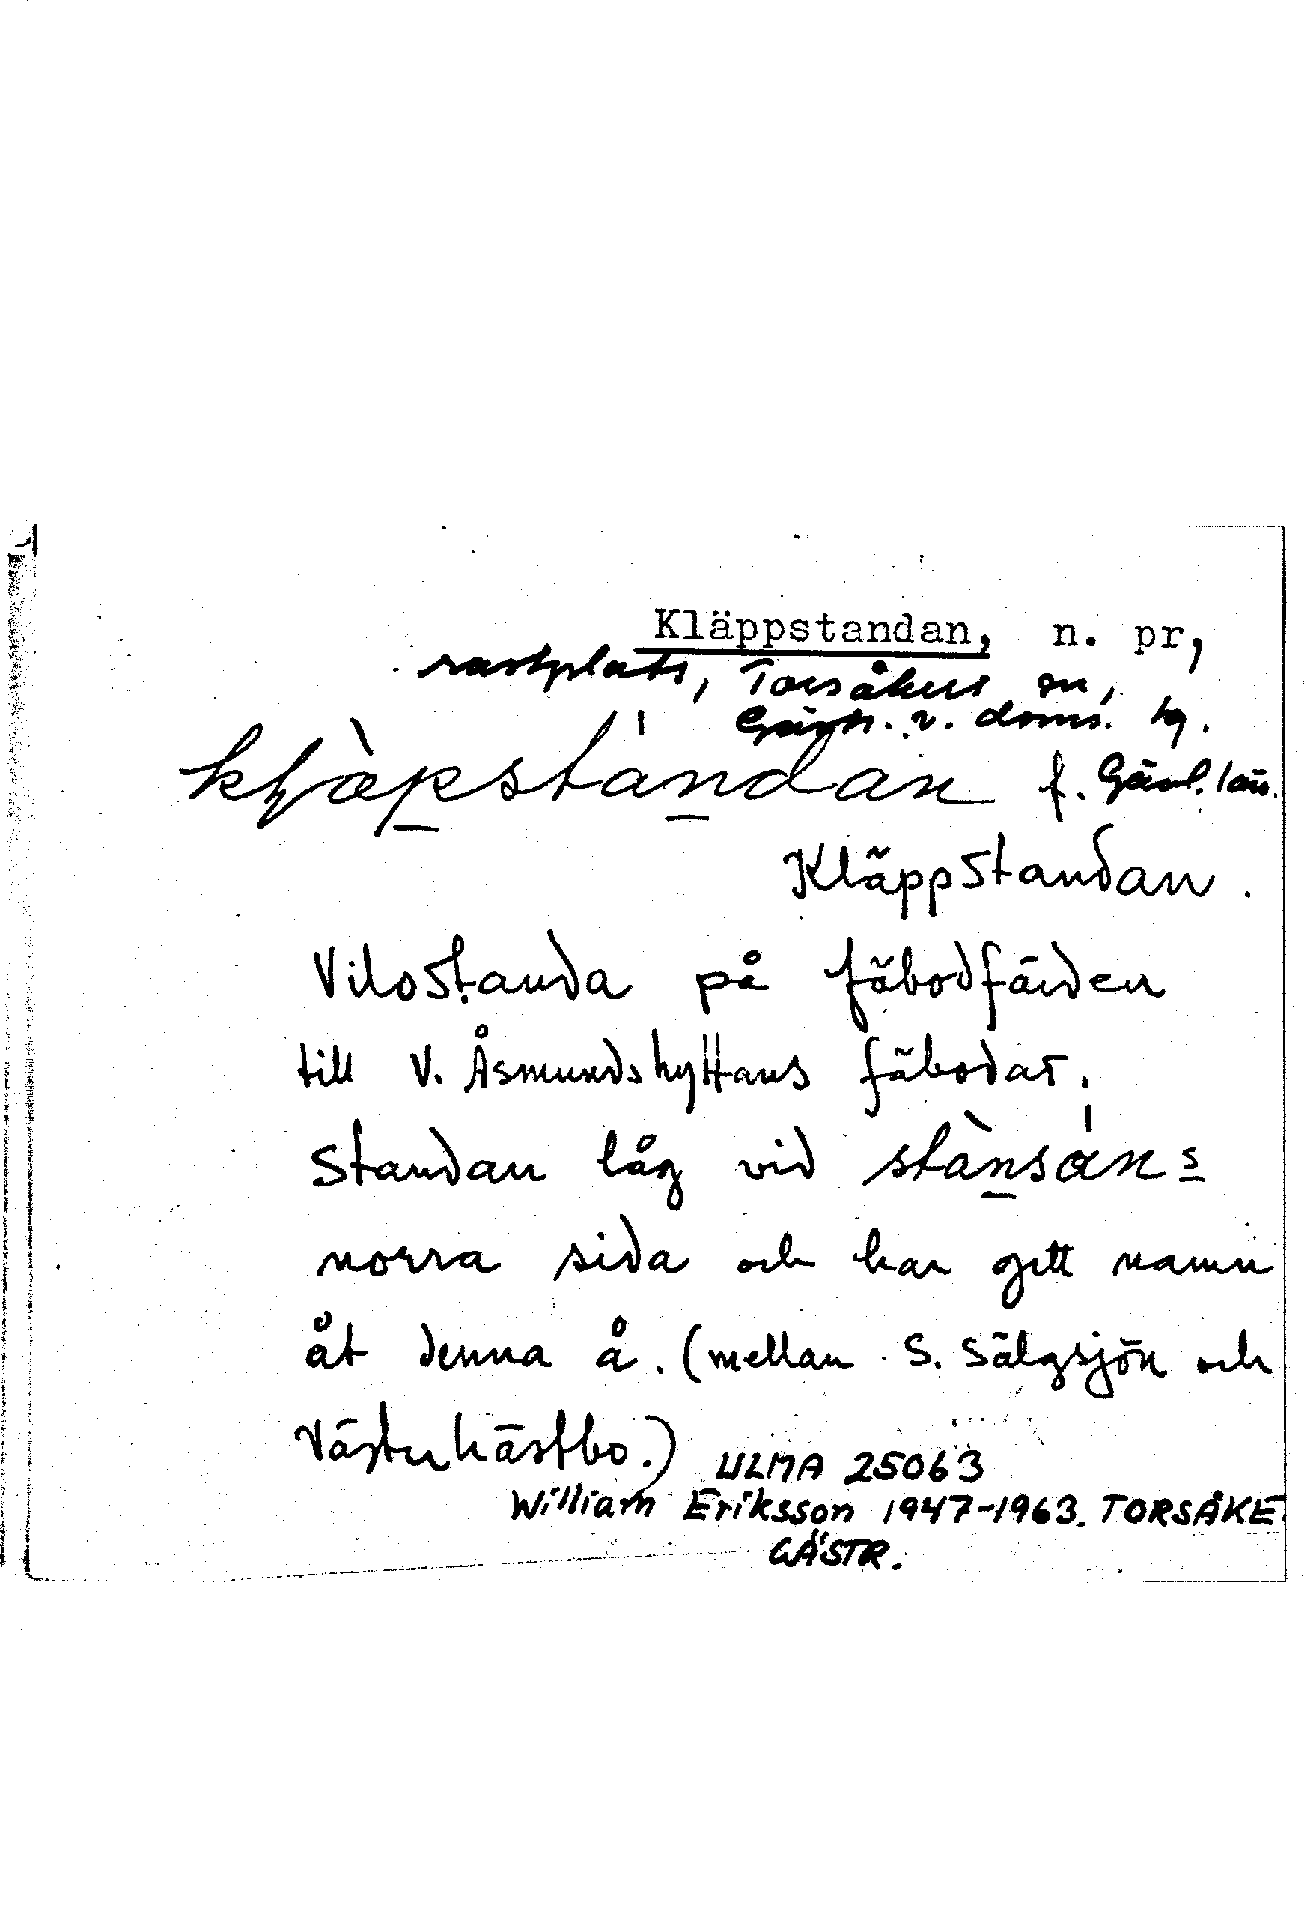 Kläppstandan, n. pr,
rastplats, Torsåkers sn,
Gästr. v. doms. tg.
f. Gävl. län.
Kläppstandan.
Vilostanda på fäbodfärden
till V. Åsmundshyttans fäbodar.
Standan låg vid stànsáns
norra sida och har gett namn
åt denna å. (mellan S. Sälgsjön och
Västerhästbo.)
ULMA 25063
William Eriksson 1947-1963. TORSÅKE
GÄSTR.